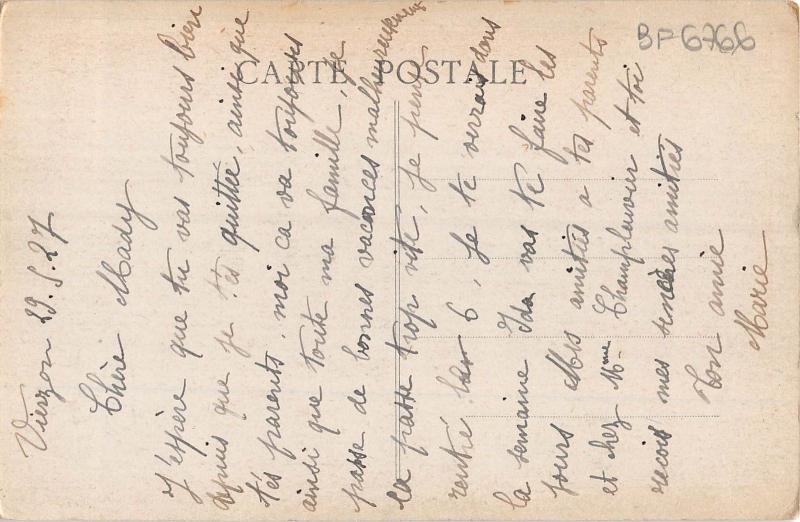 CARTE POSTALE
BP 6766
Vierzon 29.5.27
Chère Mady
J'espère que tu vas toujours bien
depuis que je t'es quittée, ainsi que
tés parents, moi ca va toujours
ainsi que toute ma famille, je
passe de bonnes vacances malheureusement
ça passe trop vite, je pense
rentré le 6, je te verrai dans
la semaine Ida vas te faire les
jours Mes amitiés a tes parents
et chez Mme Champleuvoir et toi
recois mes sincères amitiés
Ton amie
Marie